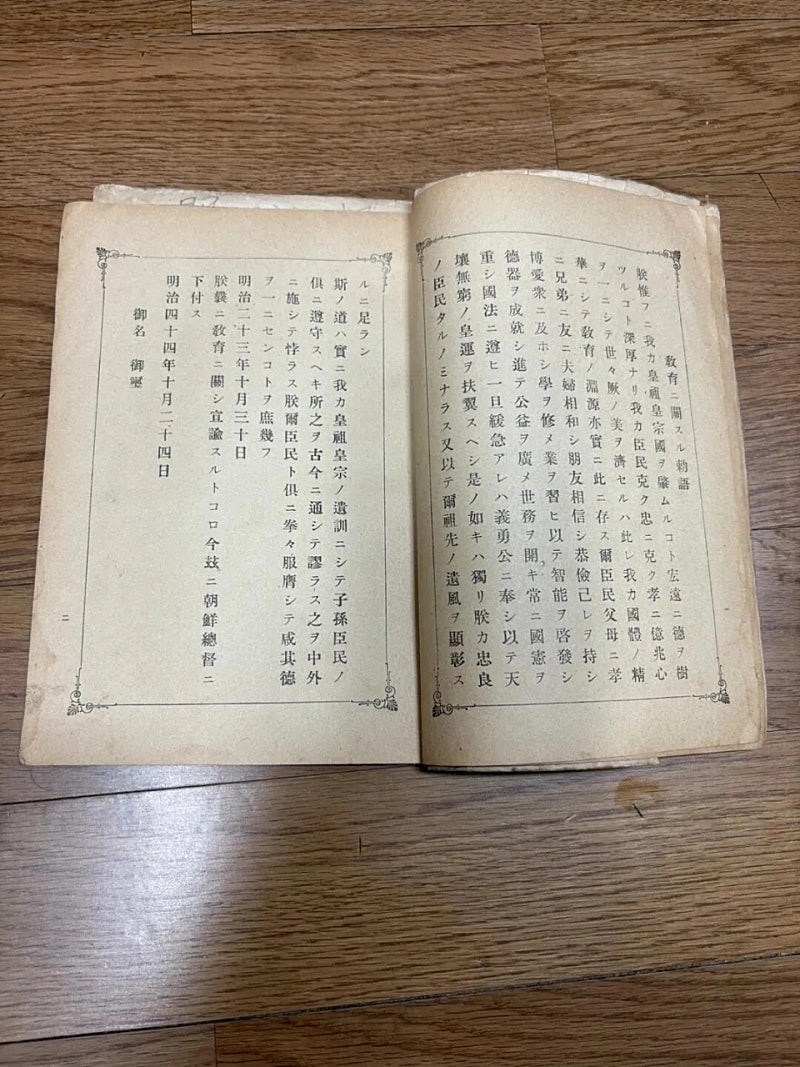 教育ニ關スル勅語
朕惟フニ我カ皇祖皇宗國ヲ肇ムルコト宏遠ニ德ヲ樹
ツルコト深厚ナリ我カ臣民克ク忠ニ克ク孝ニ億兆心
ヲ一ニシテ世々厥ノ美ヲ濟セルハ此レ我カ國體ノ精
華ニシテ敎育ノ淵源亦實ニ此ニ存ス爾臣民父母ニ孝
ニ兄弟ニ友ニ夫婦相和シ朋友相信シ恭儉己レヲ持シ
博愛衆ニ及ホシ學ヲ修メ業ヲ習ヒ以テ智能ヲ啓發シ
德器ヲ成就シ進テ公益ヲ廣メ世務ヲ開キ常ニ國憲ヲ
重シ國法ニ遵ヒ一旦緩急アレハ義勇公ニ奉シ以テ天
壤無窮ノ皇運ヲ扶翼スヘシ是ノ如キハ獨リ朕カ忠良
ノ臣民タルノミナラス又以テ爾祖先ノ遺風ヲ顯彰ス
一
ルニ足ラン
斯ノ道ハ實ニ我カ皇祖皇宗ノ遺訓ニシテ子孫臣民ノ
俱ニ遵守スヘキ所之ヲ古今ニ通シテ謬ラス之ヲ中外
ニ施シテ悖ラス朕爾臣民ト俱ニ拳々服膺シテ咸其德
ヲ一ニセンコトヲ庶幾フ
明治二十三年十月三十日
朕曩ニ敎育ニ關シ宣諭スルトコロ今茲ニ朝鮮總督ニ
下付ス
明治四十四年十月二十四日
御名 御璽
二